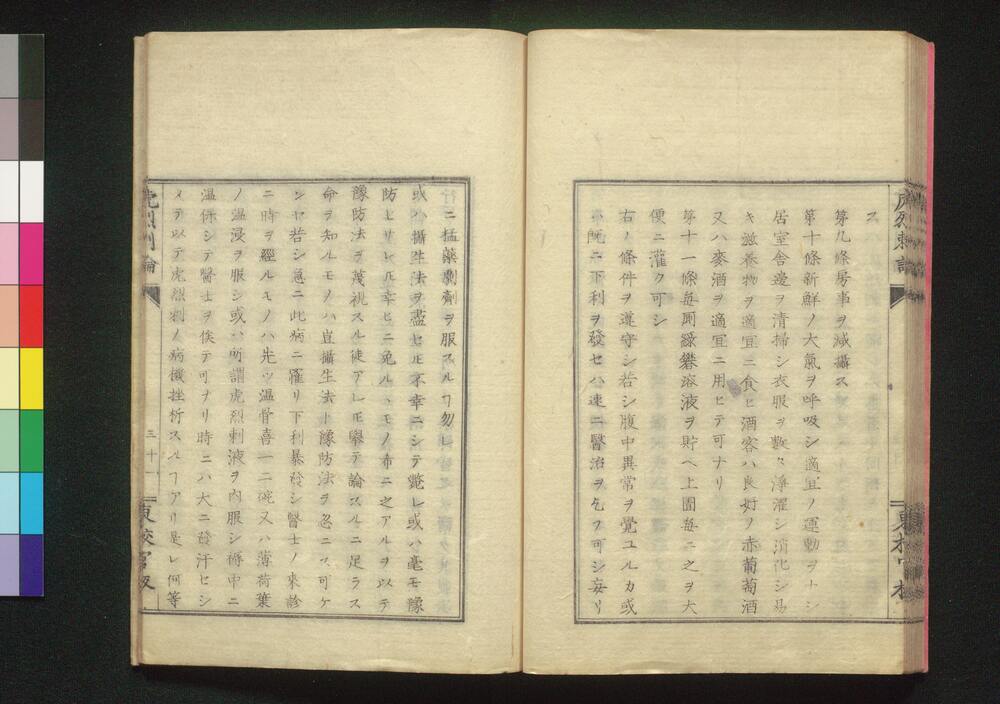 ス
第九條房事ヲ減攝ス
第十條新鮮ノ大氣ヲ呼吸シ適宜ノ運動ヲナシ
居室舍邊ヲ清掃シ衣服ヲ數々淨濯シ消化シ易
キ滋養物ヲ適宜ニ食ヒ酒客ハ良好ノ赤葡萄酒
又ハ麥酒ヲ適宜ニ用ヒテ可ナリ
第十一條每厠綠礬溶液ヲ貯ヘ上圊每ニ之ヲ大
便ニ灌ク可シ
右ノ條件ヲ遵守シ若シ腹中異常ヲ覺ユルカ或
ハ既ニ下利ヲ發セハ速ニ醫治ヲ乞フ可シ妄リ
ニ猛藥劇劑ヲ服スルヿ勿レ
或ハ攝生法ヲ盡セ𪜈不幸ニシテ斃レ或ハ毫モ豫
防セサレ𪜈幸ヒニ免ルヽモノ希ニ之アルヲ以テ
豫防法ヲ蔑視スル徒アレ𪜈擧テ論スルニ足ラス
命ヲ知ルモノハ豈攝生法ト豫防法ヲ忽ニス可ケ
ンヤ若シ急ニ此病ニ罹リ下利暴發シ醫士ノ來診
ニ時ヲ經ルモノハ先ツ溫骨喜一二碗又ハ薄荷葉
ノ溫浸ヲ服シ或ハ所謂虎烈剌液ヲ內服シ褥中ニ
溫保シテ醫士ヲ俟テ可ナリ時ニハ大ニ發汗セシ
メテ以テ虎烈剌ノ病機挫折スルヿアリ是レ何等
虎烈剌論
三十一
東校官版